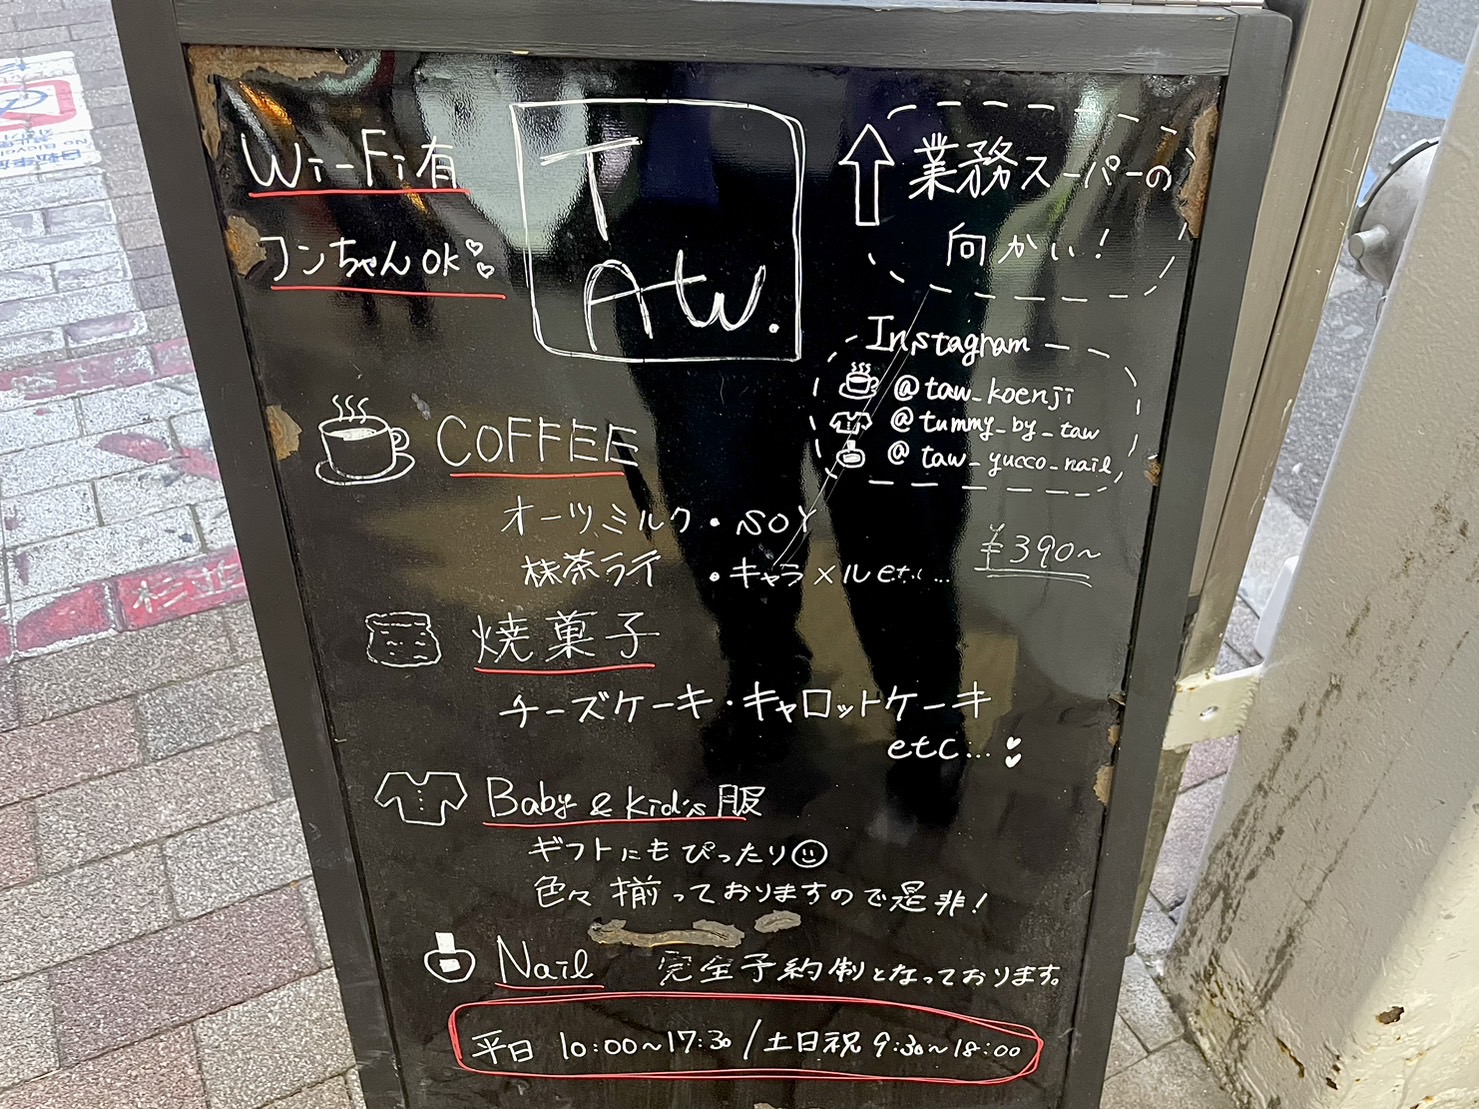 Wi-Fi有
ワンちゃんOK
T
Atw.
業務スーパーの
向かい!
Instagram
@taw_koenji
@tummy_by_taw
@taw_yucco_nail
COFFEE
オーツミルク・SOY
抹茶ラテ・キャラメルetc...
¥390~
焼菓子
チーズケーキ・キャロットケーキ
etc...
Baby & kid's 服
ギフトにもぴったり
色々揃っておりますので是非!
Nail 完全予約制となっております。
平日 10:00~17:30/土日祝 9:30~18:00